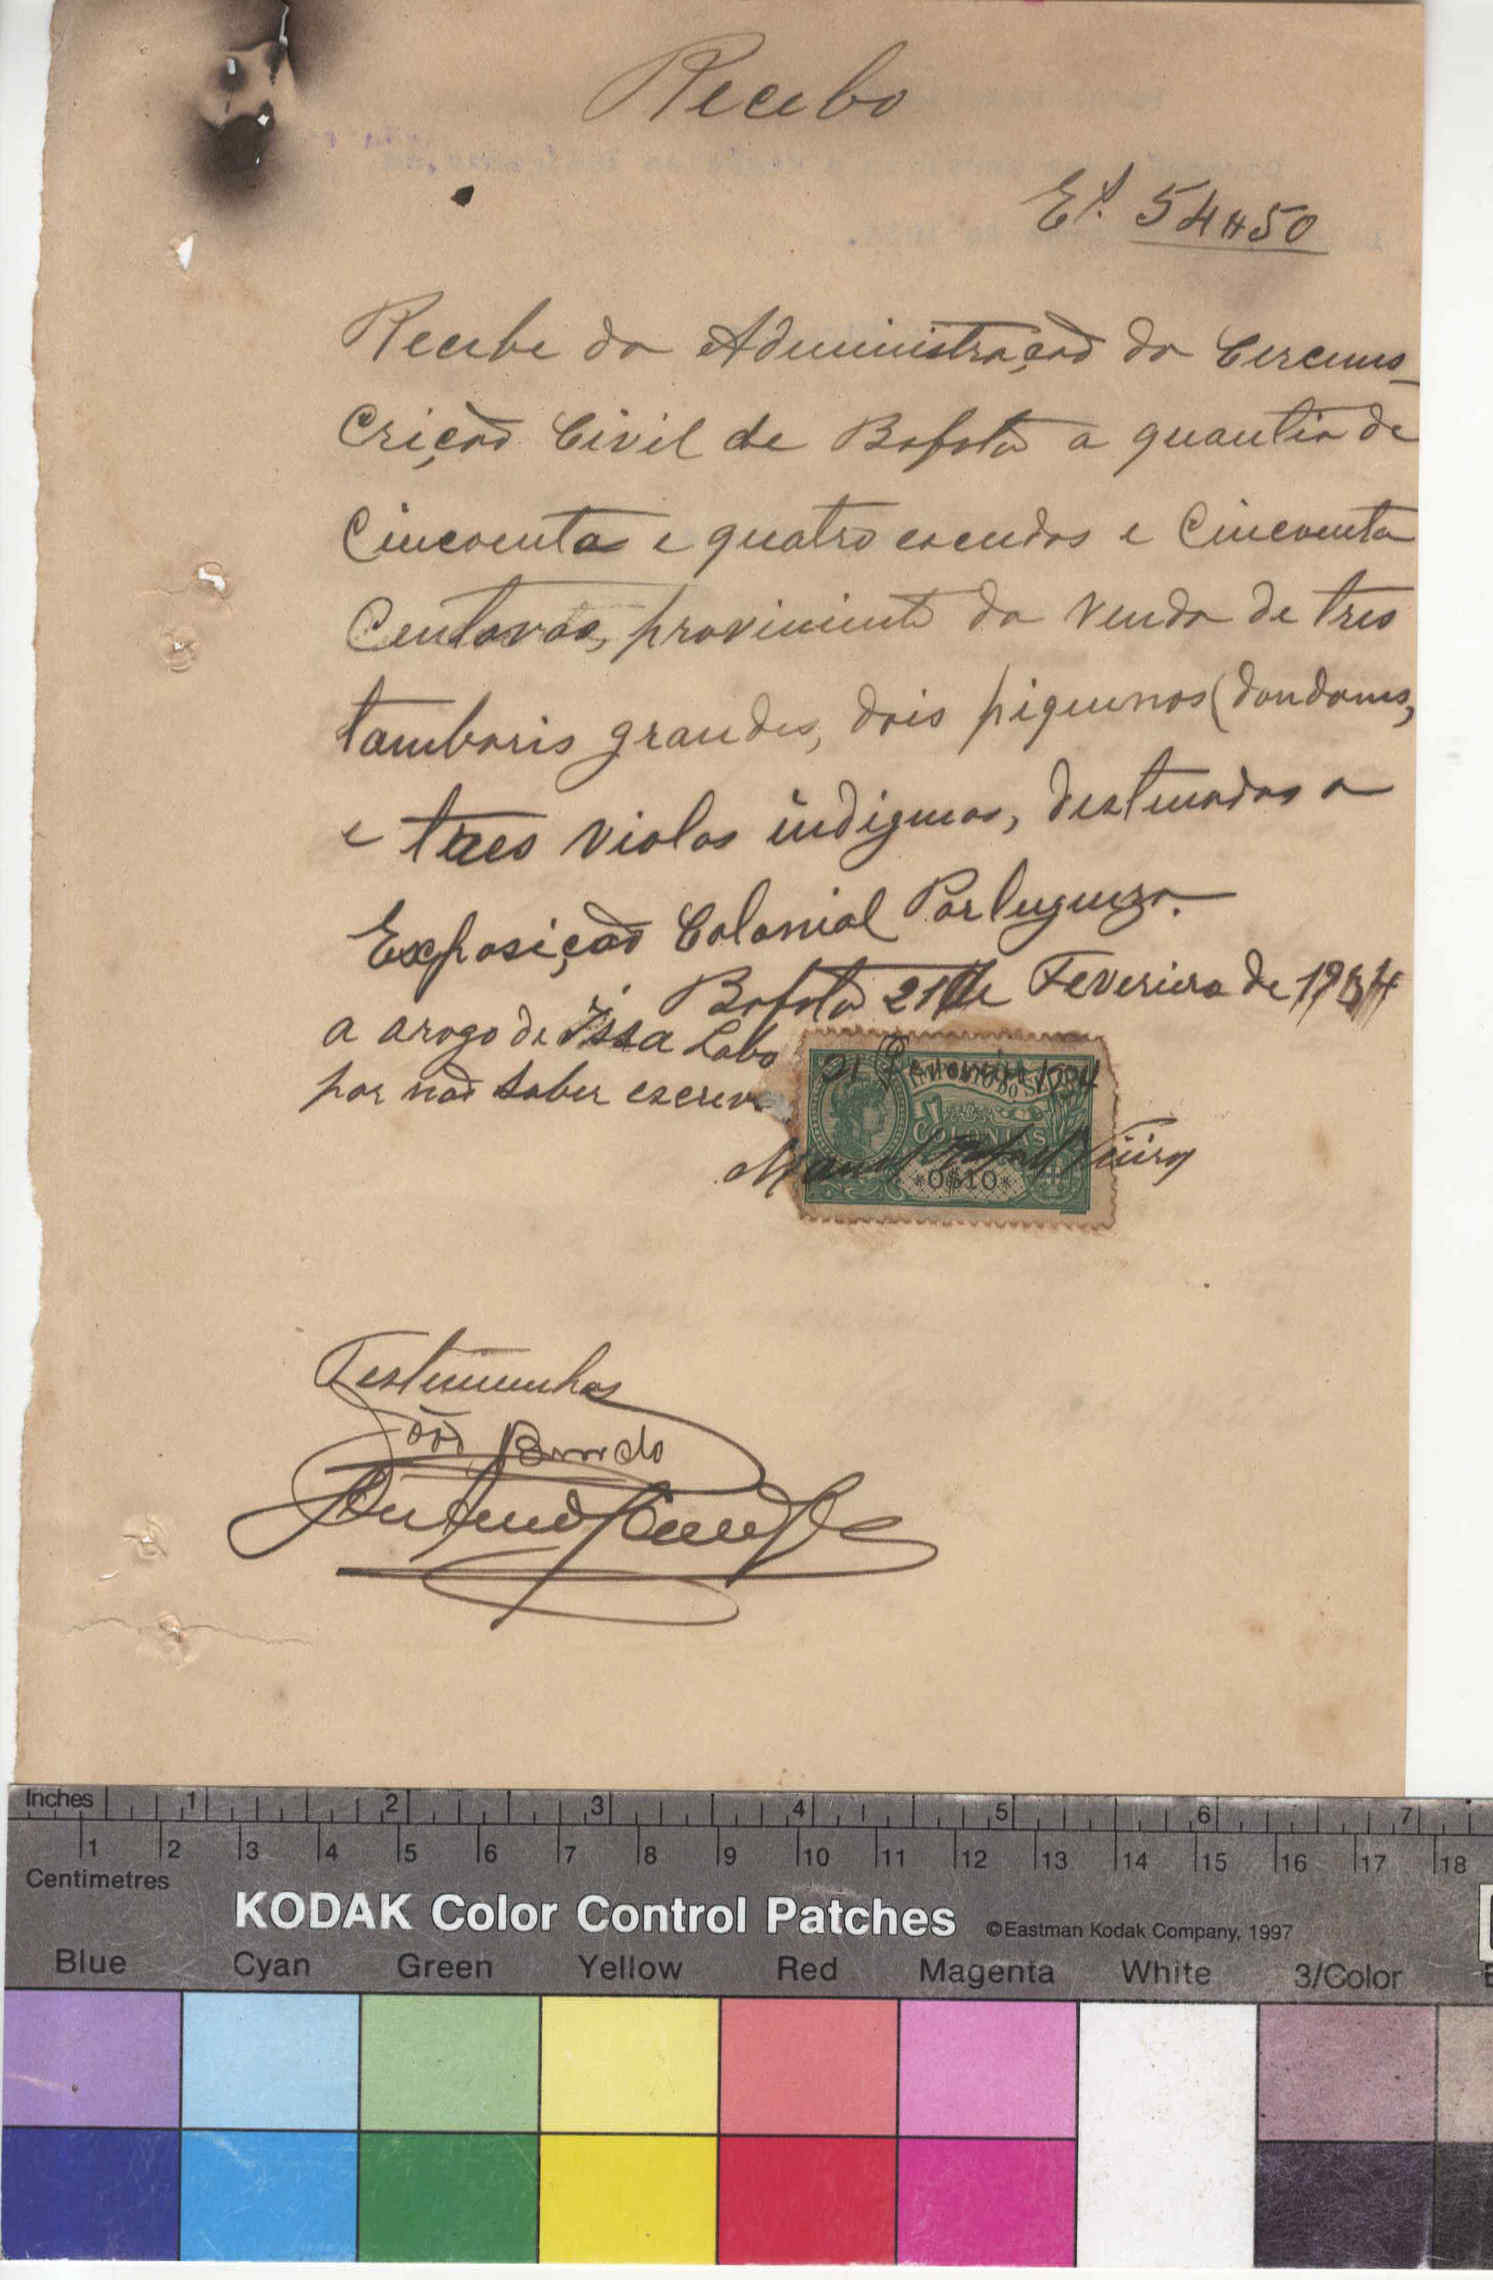 Recebo
E.s. 54$50
Recebe da Administração da Circuns-
crição Civil de Bafatá a quantia de
Cincoenta e quatro escudos e Cincoenta
Centavos, proviniente da venda de tres
tamboris grandes, dois piquenos (dondons,
e tres violas indiginas, destinadas a
Exposição Colonial Portugueza.
Bafatá 21 de Fevereiro de 1934
a arogo de Issa Labo
por não saber escrever
21 Fevereiro 1934
COLONIAS
*0$10*
Manuel
Testimunhas
João
Inches 1 2 3 4 5 6 7
1 2 3 4 5 6 7 8 9 10 11 12 13 14 15 16 17 18
Centimetres
KODAK Color Control Patches ©Eastman Kodak Company, 1997
Blue Cyan Green Yellow Red Magenta White 3/Color